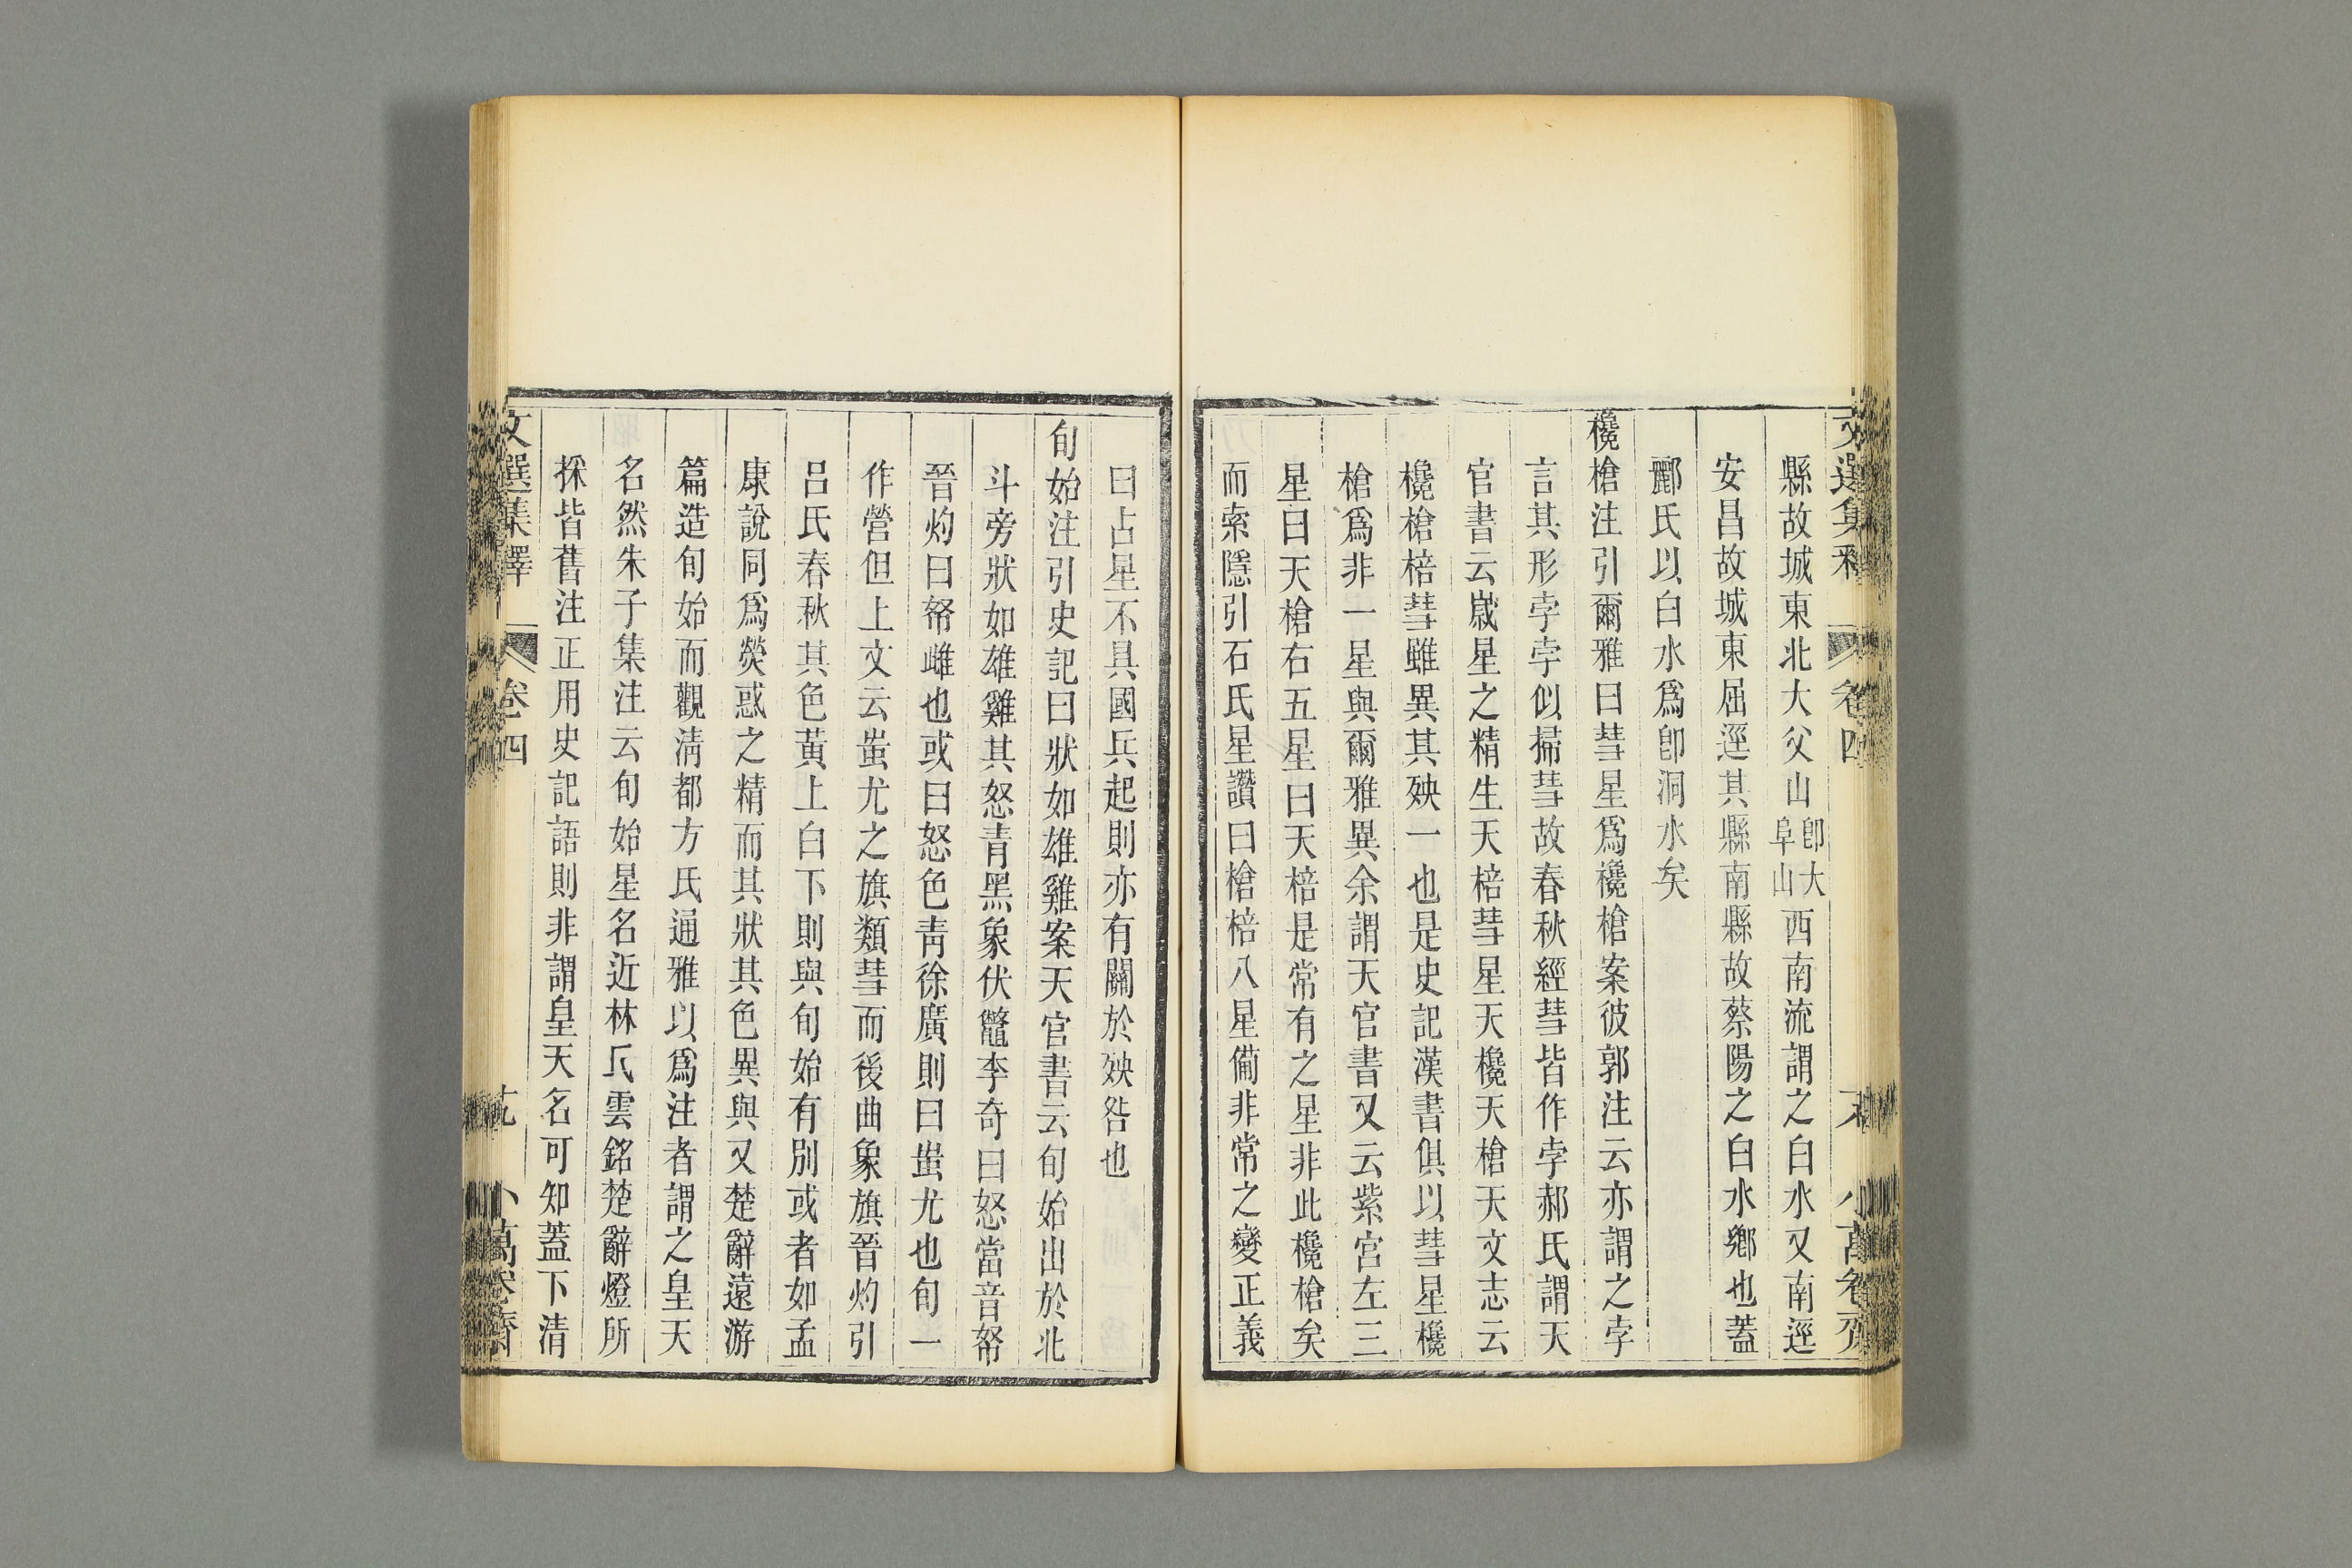 縣故城東北大父山卽大阜山西南流謂之白水又南逕
安昌故城東屈逕其縣南縣故蔡陽之白水鄉也蓋
酈氏以白水爲卽洞水矣
欃槍注引爾雅曰彗星爲欃槍案彼郭注云亦謂之孛
言其形孛孛似掃彗故春秋經彗皆作孛郝氏謂天
官書云歲星之精生天棓彗星天欃天槍天文志云
欃槍棓彗雖異其殃一也是史記漢書俱以彗星欃
槍爲非一星與爾雅異余謂天官書又云紫宮左三
星曰天槍右五星曰天棓是常有之星非此欃槍矣
而索隱引石氏星讚曰槍棓八星備非常之變正義
曰占星不具國兵起則亦有關於殃咎也
旬始注引史記曰狀如雄雞案天官書云旬始出於北
斗旁狀如雄雞其怒青黑象伏鼈李奇曰怒當音帑
晉灼曰帑雌也或曰怒色青徐廣則曰蚩尤也旬一
作營但上文云蚩尤之旗類彗而後曲象旗晉灼引
呂氏春秋其色黃上白下則與旬始有別或者如孟
康說同爲熒惑之精而其狀其色異與又楚辭遠游
篇造旬始而觀清都方氏通雅以爲注者謂之皇天
名然朱子集注云旬始星名近林氏雲銘楚辭燈所
採皆舊注正用史記語則非謂皇天名可知蓋下清
文選集釋
卷四